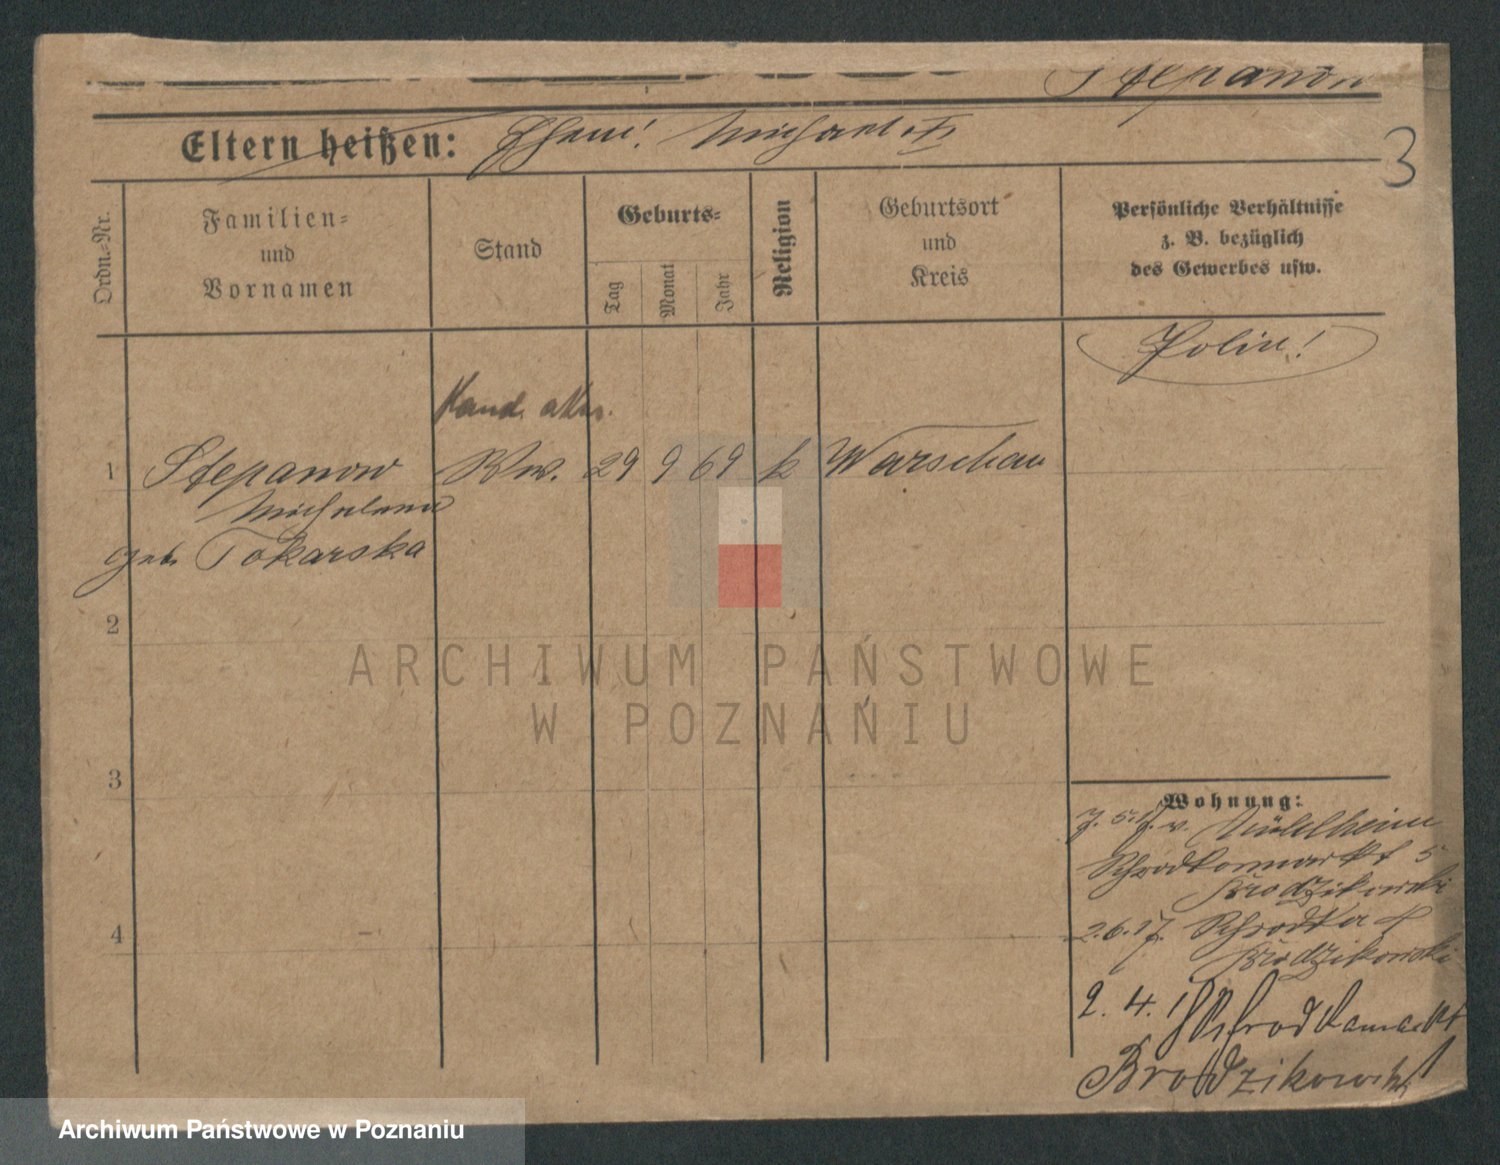 Stepanow
Eltern heißen: Ehem! Michael
3
Ordn.-Nr.
Familien-
und
Vornamen
Stand
Geburts-
Tag
Monat
Jahr
Religion
Geburtsort
und
Kreis
Persönliche Verhältnisse
z. B. bezüglich
des Gewerbes usw.
Polin!
1 Stepanow Ww. 29 9 69 k Warschau
Michalina
geb. Tokarska
2
3
4
ARCHIWUM PAŃSTWOWE
W POZNANIU
Wohnung:
v. Mühlheim
Schrodkamarkt 5
Brodzikowski
2.6.17. Schrodka
Brodzikowski
2. 4. Schrodkamarkt
Brodzikowski
Archiwum Państwowe w Poznaniu